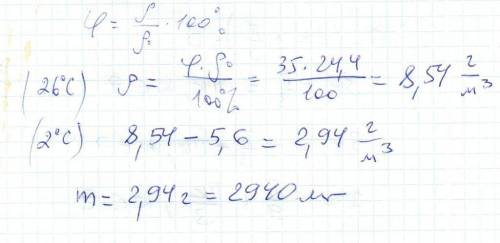 φ = ρ/ρ₀ · 100%
(26°C) ρ = φ·ρ₀/100% = 35·24,4/100 = 8,54 г/м³
(2°C) 8,54 - 5,6 = 2,94 г/м³
m = 2,94 г = 2940 мг